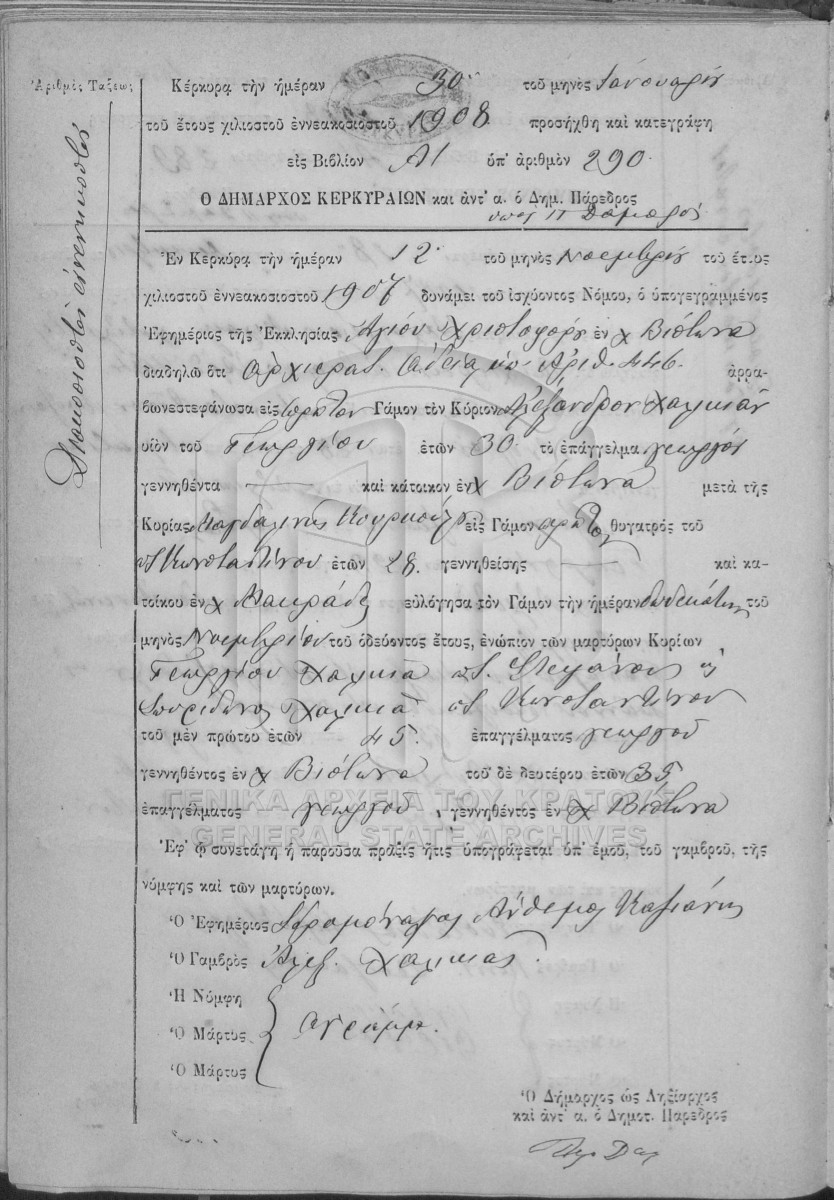 Ἀριθμὸς Τάξεως
Διακοσιοστὸς ἐννενηκοστὸς
Κέρκυρα τὴν ἡμέραν 30 τοῦ μηνὸς Ἰανουαρίου
τοῦ ἔτους χιλιοστοῦ ἐννεακοσιοστοῦ 1908 προσήχθη καὶ κατεγράφη
εἰς Βιβλίον Α1 ὑπ' ἀριθμὸν 290.
Ο ΔΗΜΑΡΧΟΣ ΚΕΡΚΥΡΑΙΩΝ καὶ ἀντ' α. ὁ Δημ. Πάρεδρος
Ἐν Κερκύρᾳ τὴν ἡμέραν 12 τοῦ μηνὸς Νοεμβρίου τοῦ ἔτους
χιλιοστοῦ ἐννεακοσιοστοῦ 1907 δυνάμει τοῦ ἰσχύοντος Νόμου, ὁ ὑπογεγραμμένος
Ἐφημέριος τῆς Ἐκκλησίας Ἁγίου Χριστοφόρου ἐν χ Βιστωνα
διαδηλῶ ὅτι ἀρχιερατ. ἀδείᾳ ὑπ' Ἀριθ. 446. ἀρρα-
βωνεστεφάνωσα εἰς πρῶτον Γάμον τὸν Κύριον Ἀλέξανδρον Χαλκιᾶν
υἱὸν τοῦ Γεωργίου ἐτῶν 30 τὸ ἐπάγγελμα γεωργὸς
γεννηθέντα — καὶ κάτοικον ἐν χ Βιστωνα μετὰ τῆς
Κυρίας Μαγδαληνῆς Κουρκούλου εἰς Γάμον πρῶτον θυγατρὸς τοῦ
ποτ Κωνσταντίνου ἐτῶν 28. γεννηθείσης — καὶ κα-
τοίκου ἐν χ Μακράδες εὐλόγησα τὸν Γάμον τὴν ἡμέραν δωδεκάτην τοῦ
μηνὸς Νοεμβρίου τοῦ ὁδεύοντος ἔτους, ἐνώπιον τῶν μαρτύρων Κυρίων
Γεωργίου Χαλκιᾶ ποτ. Στεφάνου κ
Σπυρίδωνος Χαλκιᾶ ποτ Κωνσταντίνου
τοῦ μὲν πρώτου ἐτῶν 45 ἐπαγγέλματος γεωργοῦ
γεννηθέντος ἐν χ Βιστωνα τοῦ δὲ δευτέρου ἐτῶν 35
ἐπαγγέλματος γεωργοῦ γεννηθέντος ἐν χ Βιστωνα
ΓΕΝΙΚΑ ΑΡΧΕΙΑ ΤΟΥ ΚΡΑΤΟΥΣ
GENERAL STATE ARCHIVES
Ἐφ' ᾧ συνετάγη ἡ παροῦσα πρᾶξις ἥτις ὑπογράφεται ὑπ' ἐμοῦ, τοῦ γαμβροῦ, τῆς
νύμφης καὶ τῶν μαρτύρων.
Ὁ Ἐφημέριος Ἱερομόναχος Ἄνθιμος
Ὁ Γαμβρὸς Ἀλέξ. Χαλκιᾶς
Ἡ Νύμφη
Ὁ Μάρτυς ἀγράμμ.
Ὁ Μάρτυς
Ὁ Δήμαρχος ὡς Ληξίαρχος
καὶ ἀντ' α. ὁ Δημοτ. Πάρεδρος